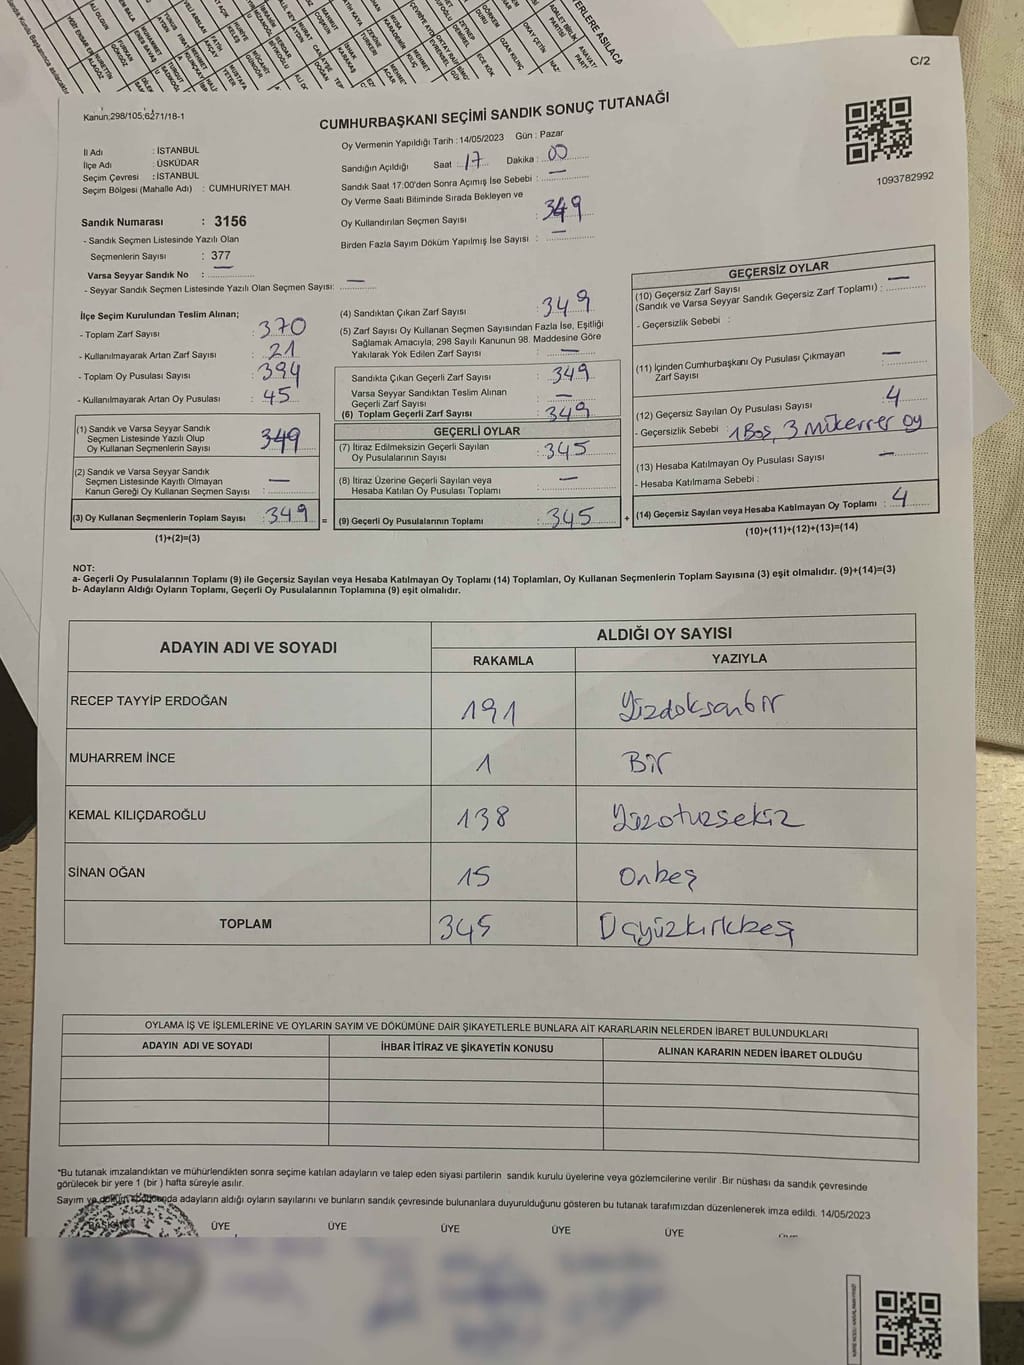 C/2
Kanun,298/105,6271/18-1
CUMHURBAŞKANI SEÇİMİ SANDIK SONUÇ TUTANAĞI
1093782992
İl Adı : İSTANBUL
İlçe Adı : ÜSKÜDAR
Seçim Çevresi : İSTANBUL
Seçim Bölgesi (Mahalle Adı) : CUMHURİYET MAH.
Sandık Numarası : 3156
- Sandık Seçmen Listesinde Yazılı Olan
Seçmenlerin Sayısı : 377
Varsa Seyyar Sandık No : —
- Seyyar Sandık Seçmen Listesinde Yazılı Olan Seçmen Sayısı: —
Oy Vermenin Yapıldığı Tarih : 14/05/2023 Gün : Pazar
Sandığın Açıldığı Saat : 17 Dakika : 00
Sandık Saat 17:00'den Sonra Açımış İse Sebebi : —
Oy Verme Saati Bitiminde Sırada Bekleyen ve
Oy Kullandırılan Seçmen Sayısı : 349
Birden Fazla Sayım Döküm Yapılmış İse Sayısı : —
İlçe Seçim Kurulundan Teslim Alınan;
- Toplam Zarf Sayısı : 370
- Kullanılmayarak Artan Zarf Sayısı : 21
- Toplam Oy Pusulası Sayısı : 394
- Kullanılmayarak Artan Oy Pusulası : 45
(1) Sandık ve Varsa Seyyar Sandık
Seçmen Listesinde Yazılı Olup
Oy Kullanan Seçmenlerin Sayısı : 349
(2) Sandık ve Varsa Seyyar Sandık
Seçmen Listesinde Kayıtlı Olmayan
Kanun Gereği Oy Kullanan Seçmen Sayısı : —
(3) Oy Kullanan Seçmenlerin Toplam Sayısı : 349
(1)+(2)=(3)
(4) Sandıktan Çıkan Zarf Sayısı : 349
(5) Zarf Sayısı Oy Kullanan Seçmen Sayısından Fazla İse, Eşitliği
Sağlamak Amacıyla, 298 Sayılı Kanunun 98. Maddesine Göre
Yakılarak Yok Edilen Zarf Sayısı : —
Sandıkta Çıkan Geçerli Zarf Sayısı : 349
Varsa Seyyar Sandıktan Teslim Alınan
Geçerli Zarf Sayısı : —
(6) Toplam Geçerli Zarf Sayısı : 349
GEÇERLİ OYLAR
(7) İtiraz Edilmeksizin Geçerli Sayılan
Oy Pusulalarının Sayısı : 345
(8) İtiraz Üzerine Geçerli Sayılan veya
Hesaba Katılan Oy Pusulası Toplamı : —
= (9) Geçerli Oy Pusulalarının Toplamı : 345 +
GEÇERSİZ OYLAR
(10) Geçersiz Zarf Sayısı
(Sandık ve Varsa Seyyar Sandık Geçersiz Zarf Toplamı) : —
- Geçersizlik Sebebi :
(11) İçinden Cumhurbaşkanı Oy Pusulası Çıkmayan
Zarf Sayısı : —
(12) Geçersiz Sayılan Oy Pusulası Sayısı : 4
- Geçersizlik Sebebi : 1 Boş, 3 Mükerrer oy
(13) Hesaba Katılmayan Oy Pusulası Sayısı : —
- Hesaba Katılmama Sebebi :
(14) Geçersiz Sayılan veya Hesaba Katılmayan Oy Toplamı : 4
(10)+(11)+(12)+(13)=(14)
NOT:
a- Geçerli Oy Pusulalarının Toplamı (9) ile Geçersiz Sayılan veya Hesaba Katılmayan Oy Toplamı (14) Toplamları, Oy Kullanan Seçmenlerin Toplam Sayısına (3) eşit olmalıdır. (9)+(14)=(3)
b- Adayların Aldığı Oyların Toplamı, Geçerli Oy Pusulalarının Toplamına (9) eşit olmalıdır.
ADAYIN ADI VE SOYADI ALDIĞI OY SAYISI
RAKAMLA YAZIYLA
RECEP TAYYİP ERDOĞAN 191 Yüzdoksanbir
MUHARREM İNCE 1 Bir
KEMAL KILIÇDAROĞLU 138 Yüzotuzsekiz
SİNAN OĞAN 15 Onbeş
TOPLAM 345 Üçyüzkırkbeş
OYLAMA İŞ VE İŞLEMLERİNE VE OYLARIN SAYIM VE DÖKÜMÜNE DAİR ŞİKAYETLERLE BUNLARA AİT KARARLARIN NELERDEN İBARET BULUNDUKLARI
ADAYIN ADI VE SOYADI İHBAR İTİRAZ VE ŞİKAYETİN KONUSU ALINAN KARARIN NEDEN İBARET OLDUĞU
*Bu tutanak imzalandıktan ve mühürlendikten sonra seçime katılan adayların ve talep eden siyasi partilerin sandık kurulu üyelerine veya gözlemcilerine verilir .Bir nüshası da sandık çevresinde
görülecek bir yere 1 (bir ) hafta süreyle asılır.
Sayım ve döküm sonucunda adayların aldığı oyların sayılarını ve bunların sandık çevresinde bulunanlara duyurulduğunu gösteren bu tutanak tarafımızdan düzenlenerek imza edildi. 14/05/2023
BAŞKAN ÜYE ÜYE ÜYE ÜYE ÜYE